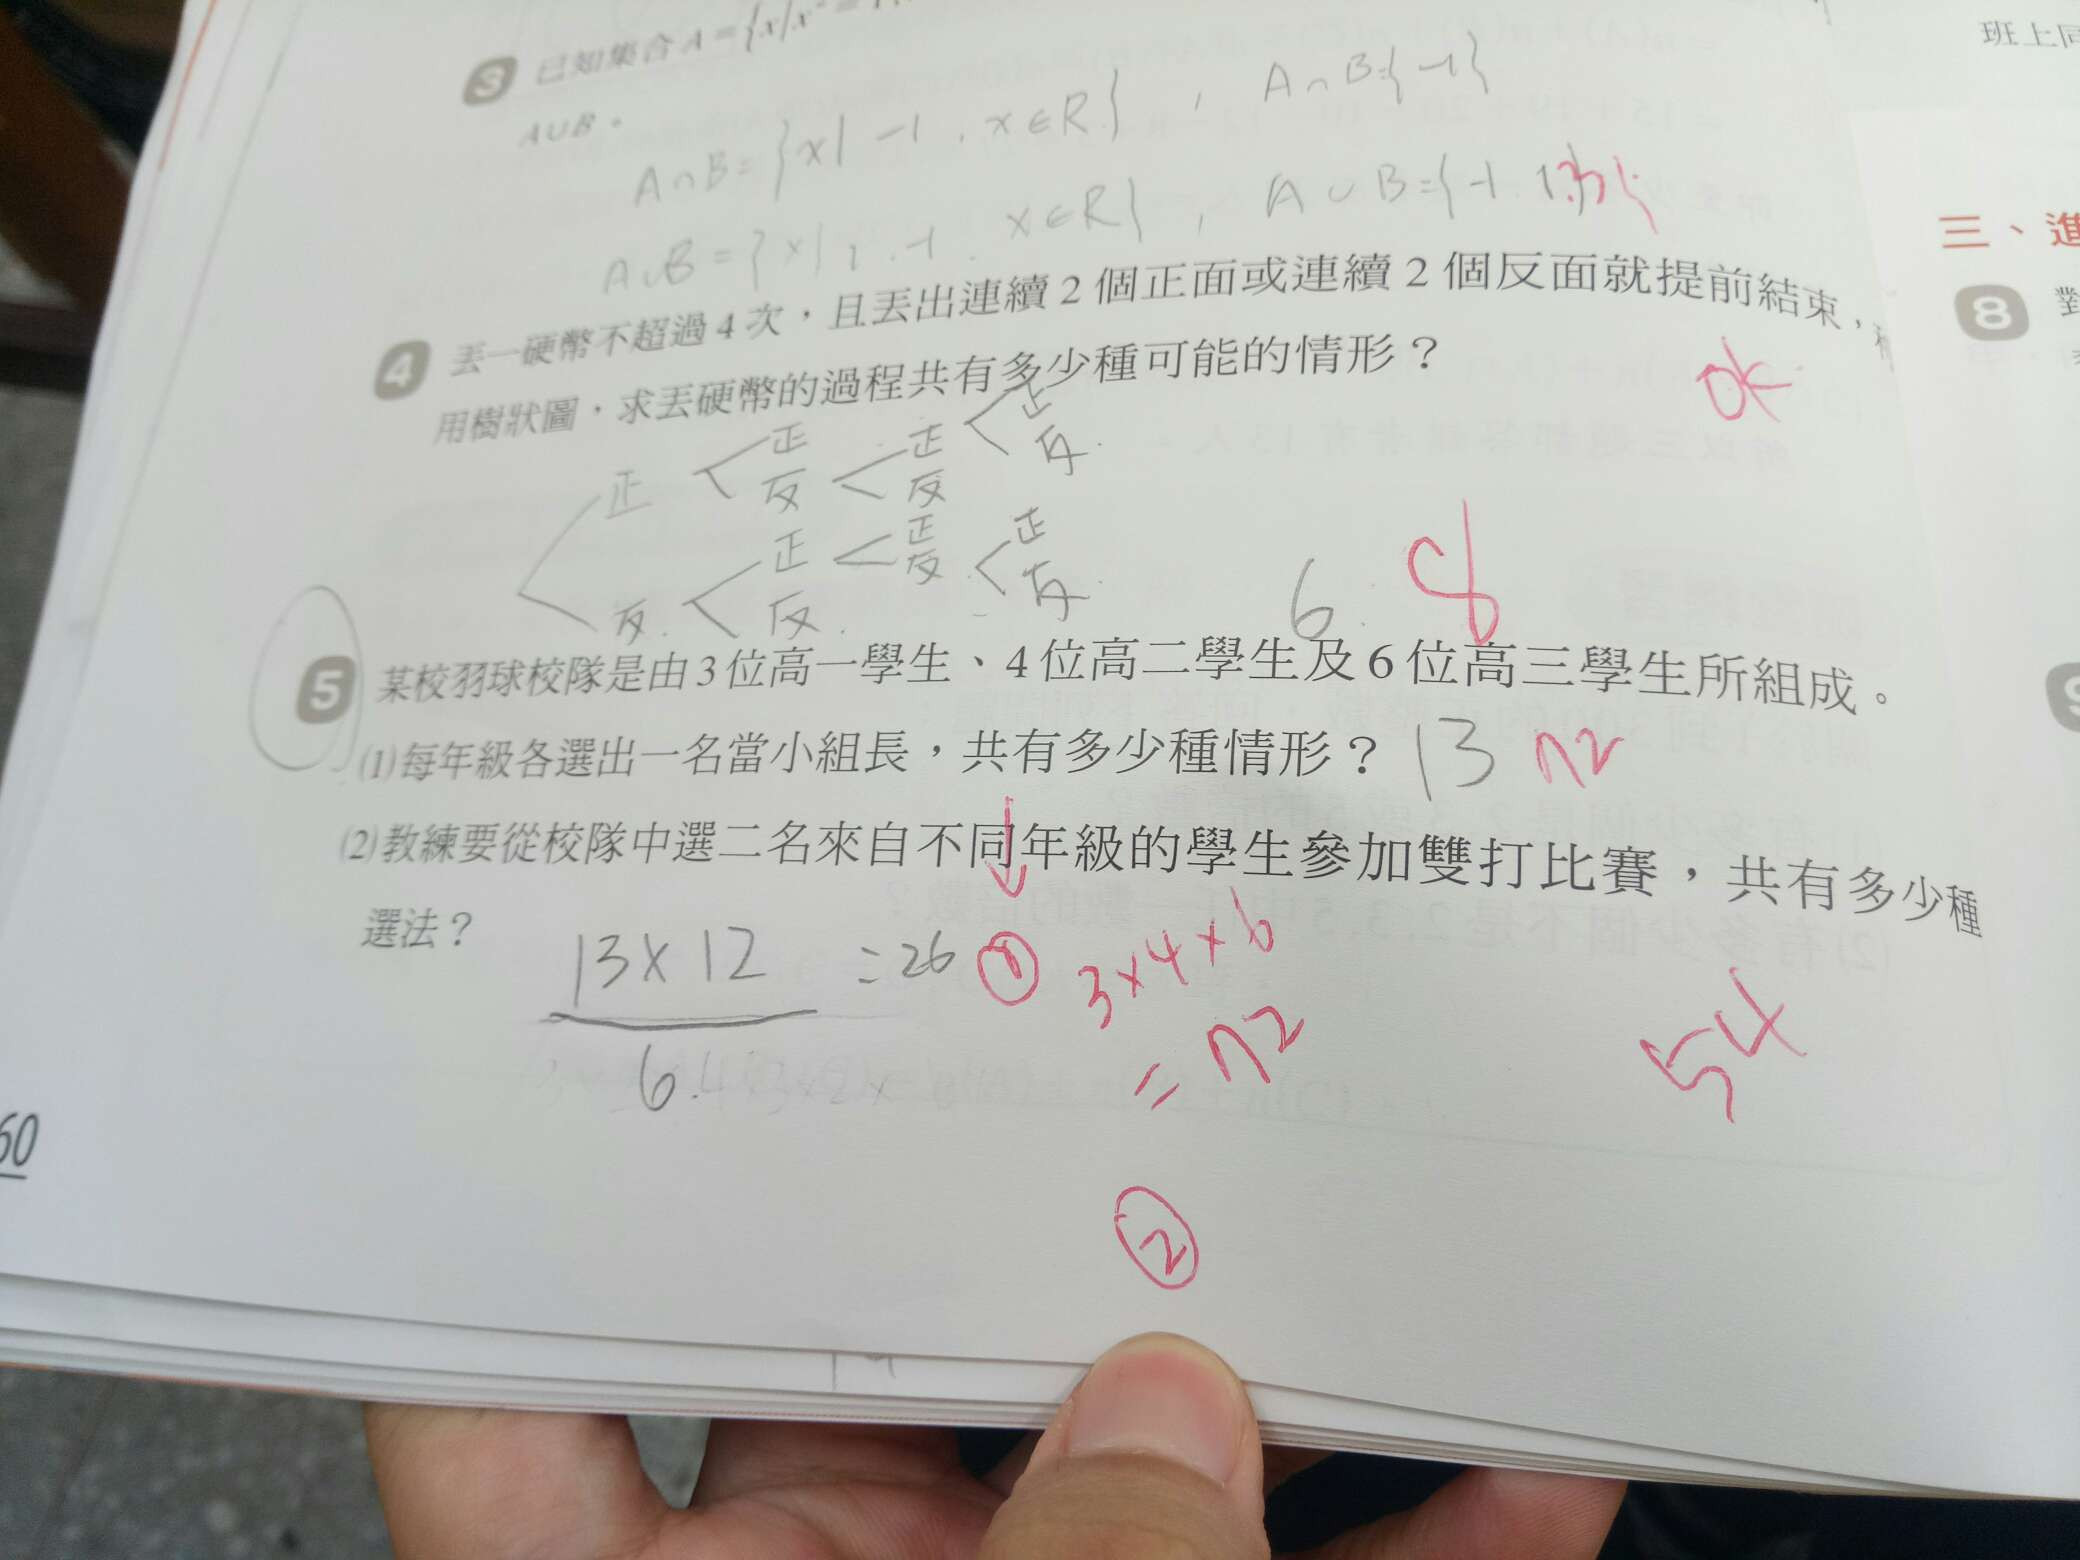 班上同
3 已知集合A={x|x²=1
A∪B。
A∩B={x|-1,x∈R}, A∩B={-1}
A∪B={x|1,-1,x∈R}, A∪B={-1,1,3}
三、進
4 丟一硬幣不超過4次,且丟出連續2個正面或連續2個反面就提前結束,
8 對
用樹狀圖,求丟硬幣的過程共有多少種可能的情形?
ok
正 反
正 反 正 反
正 反 正 反
正 反 正 反
6. 8
5 某校羽球校隊是由3位高一學生、4位高二學生及6位高三學生所組成。
9
(1)每年級各選出一名當小組長,共有多少種情形? 13 72
(2)教練要從校隊中選二名來自不同年級的學生參加雙打比賽,共有多少種
選法?
13×12 =26 ① 3×4×6
6. =72
54
60
②